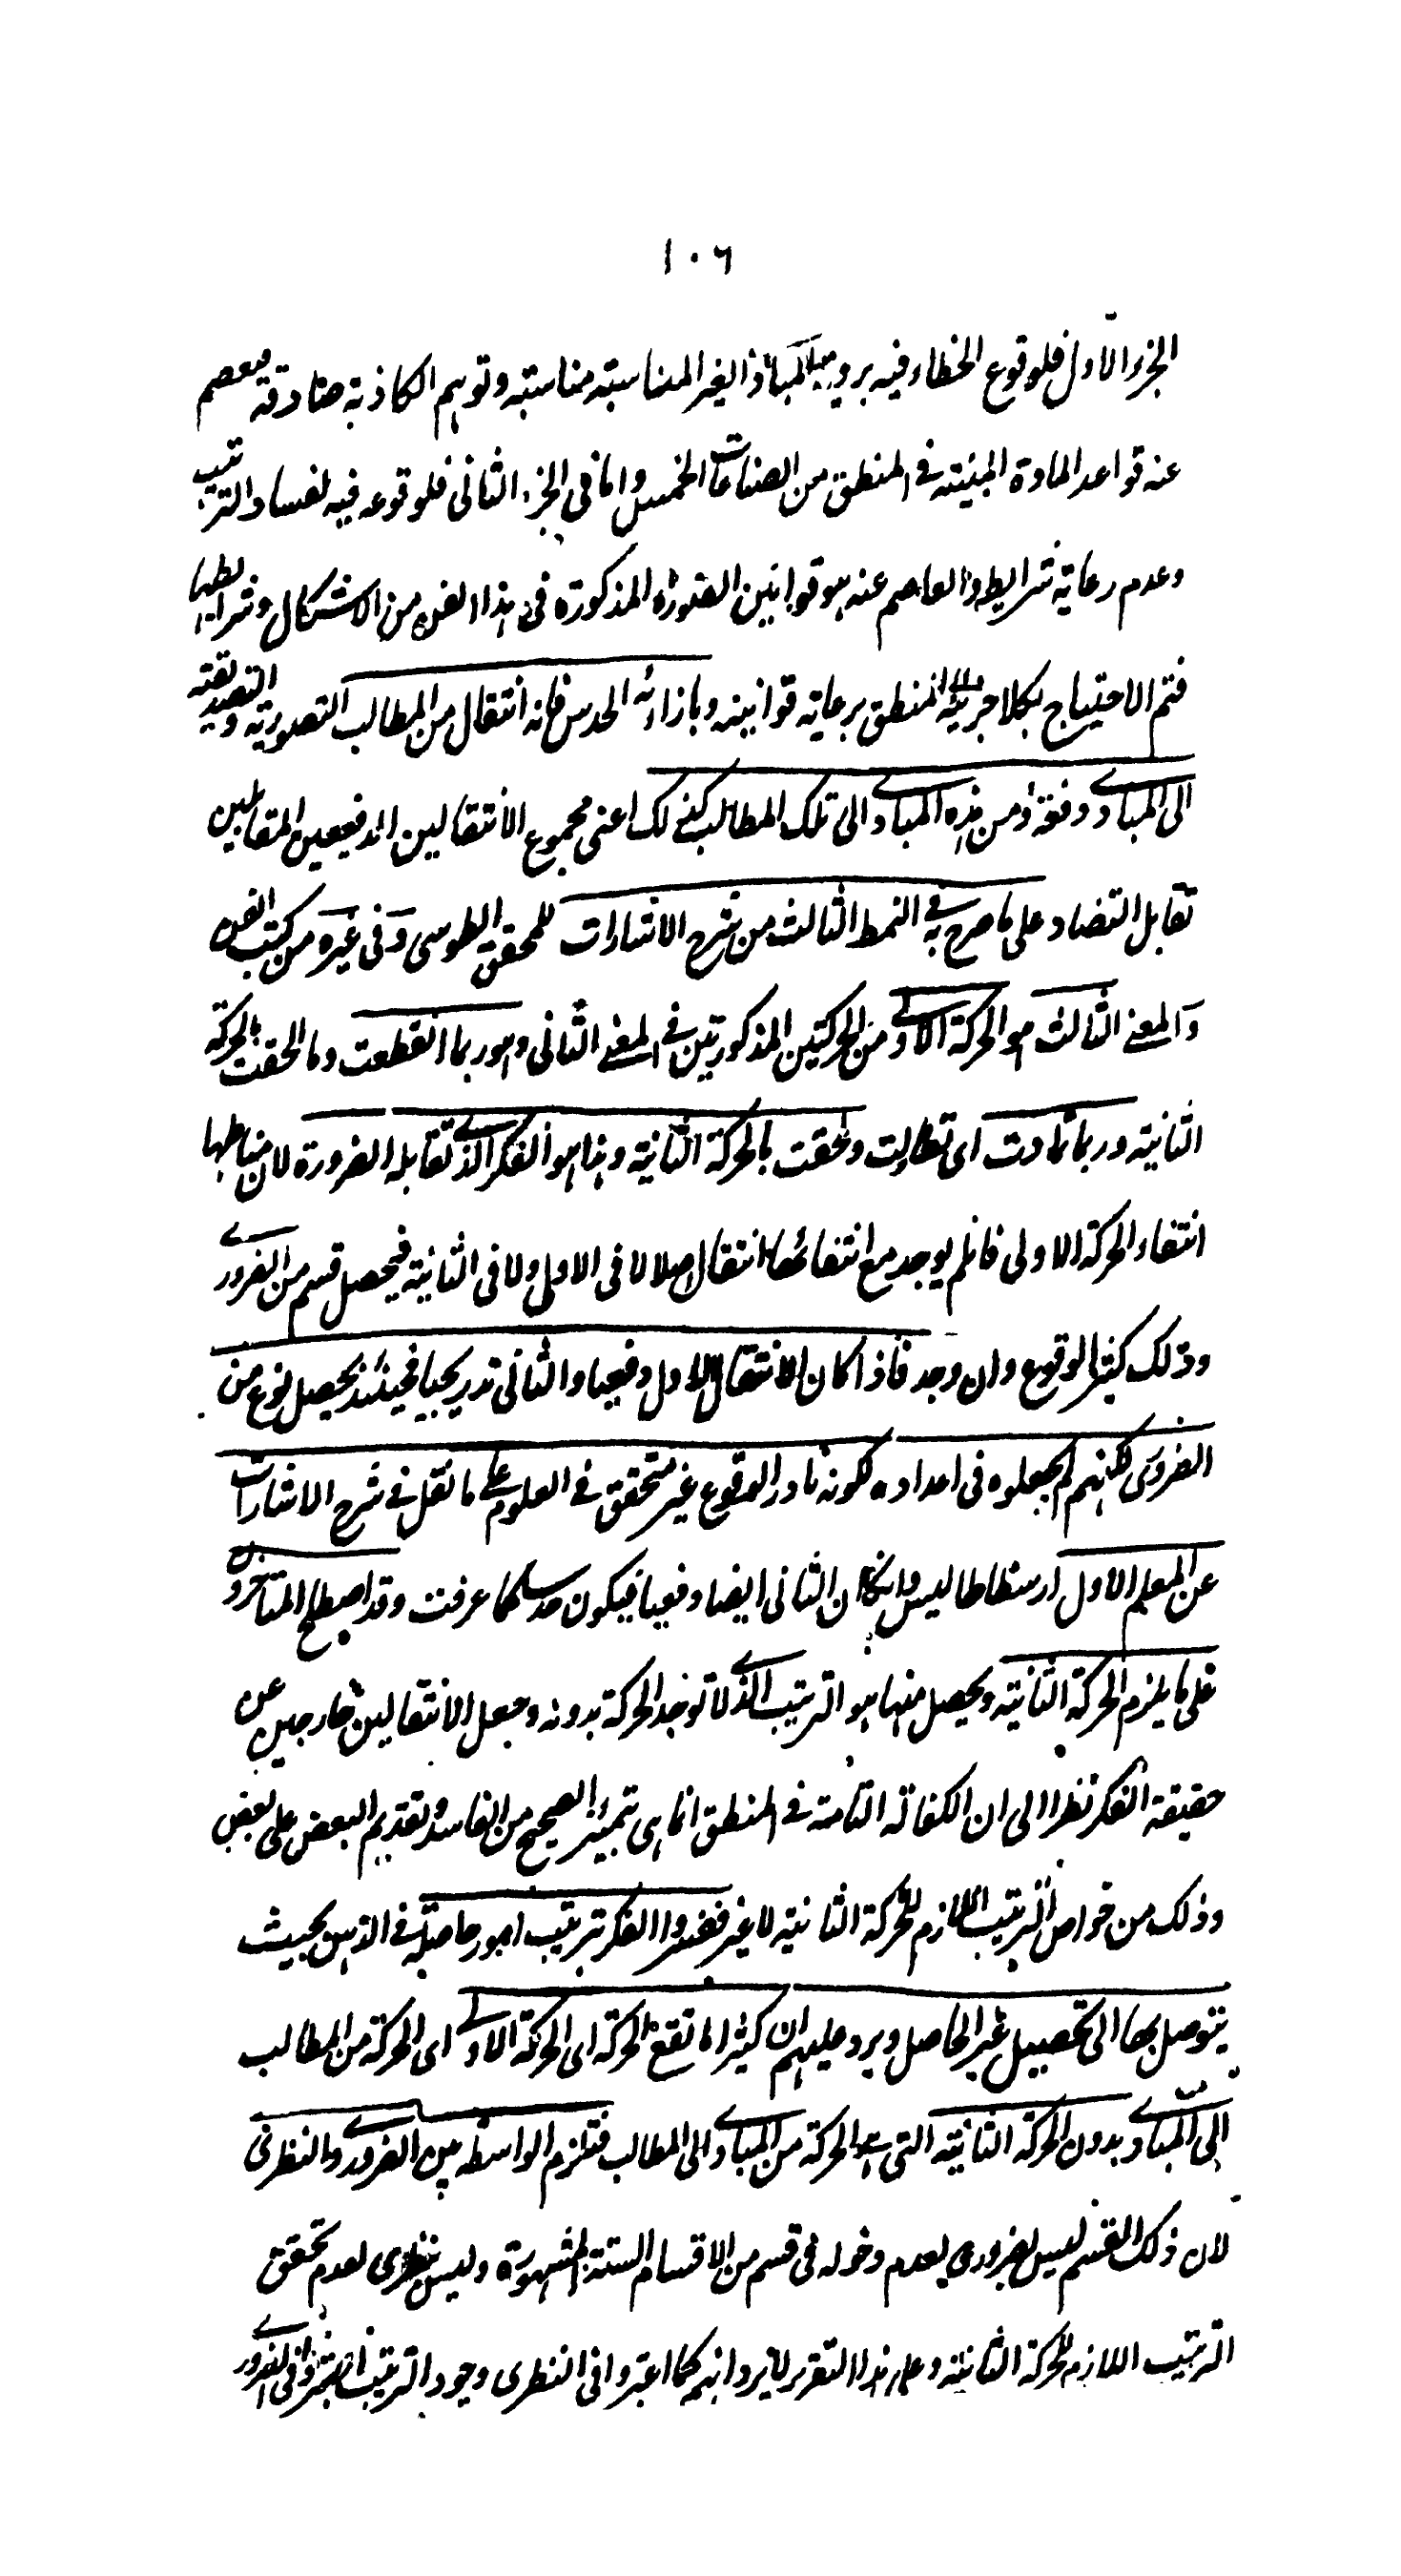 ١٠٦
الجزء الاول فلوقوع الخطاء فيه بردية المبادى الغير المناسبته مناسبته وتوهم الكاذبة صادقة فيعصم
عنه قواعد المادة المبنيته في المنطق من الصناعات الخمس واما في الجزء الثانى فلوقوعه فيه لفساد الترتيب
وعدم رعاية شرايطه والعاصم عنه هو قوانين الصورة المذكورة فى هذا الفن من الاشكال وشرايطها
فتم الاحتياج بكلا جزئيه الى المنطق برعاية قوانينه وبازائه الحدس فانه انتقال من المطالب التصورية والتصديقية
الى المبادى دفعة ومن هذه المبادى الى تلك المطالب كذلك اعنى مجموع الانتقالين الدفعيين المتقابلين
تقابل التضاد على ما صرح به في النمط الثالث من شرح الاشارات للمحقق الطوسى وفى غيره من كتب الفن
والمعنى الثالث هو الحركة الاولى من الحركتين المذكورتين في المعنى الثانى وهو ربما انقطعت وما الحقت بالحركة
الثانية وربما تمادت اى تطاولت ولحقت بالحركة الثانية وهذا هو الفكر الذى تقابله الضرورة لان مناطها
انتفاء الحركة الاولى فان لم يوجد مع انتفائها انتقال اصلا لا فى الاولى ولا فى الثانية فيحصل قسم من الضرورى
وذلك كثير الوقوع وان وجد فاذا كان الانتقال الاول دفعيا والثانى تدريجيا فحينئذ يحصل نوع من
الضرورى لكنهم لم يجعلوه فى اعداده لكونه نادر الوقوع غير متحقق في العلوم على ما نقل في شرح الاشارات
عن المعلم الاول ارسطاطاليس وان كان الثانى ايضا دفعيا فيكون حدسا كما عرفت وقد اصطلح المتاخرون
على ما يلزم الحركة الثانية ويحصل منها هو الترتيب الذى لا توجد الحركة بدونه وجعل الانتقالين خارجين عن
حقيقة الفكر نظرا الى ان الكفالة التامة في المنطق انما هى تميز الصحيح من الفاسد وتقديم البعض على بعض
وذلك من خواص الترتيب اللازم للحركة الثانية لا غير ففسروا الفكر ترتيب امور حاصلة في الذهن بحيث
يتوصل بها الى تحصيل غير الحاصل ويرد عليهم ان كثيرا ما تقع الحركة اى الحركة الاولى اى الحركة من المطالب
الى المبادى بدون الحركة الثانية التى هى الحركة من المبادى الى المطالب فتلزم الواسطة بين الضرورى والنظرى
لان ذلك القسم ليس بضرورى لعدم دخوله فى قسم من الاقسام الستة المشهورة وليس بنظرى لعدم تحقق
الترتيب اللازم للحركة الثانية وعلى هذا التقرير لا يرد انهم كما اعتبروا فى النظرى وجود الترتيب اعتبروا فى الضرورى